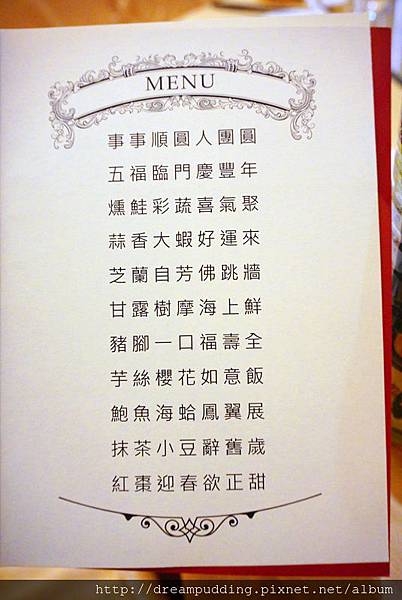 MENU
事事順圓人團圓
五福臨門慶豐年
燻鮭彩蔬喜氣聚
蒜香大蝦好運來
芝蘭自芳佛跳牆
甘露樹摩海上鮮
豬腳一口福壽全
芋絲櫻花如意飯
鮑魚海蛤鳳翼展
抹茶小豆辭舊歲
紅棗迎春欲正甜
http://dreampudding.pixnet.net/album